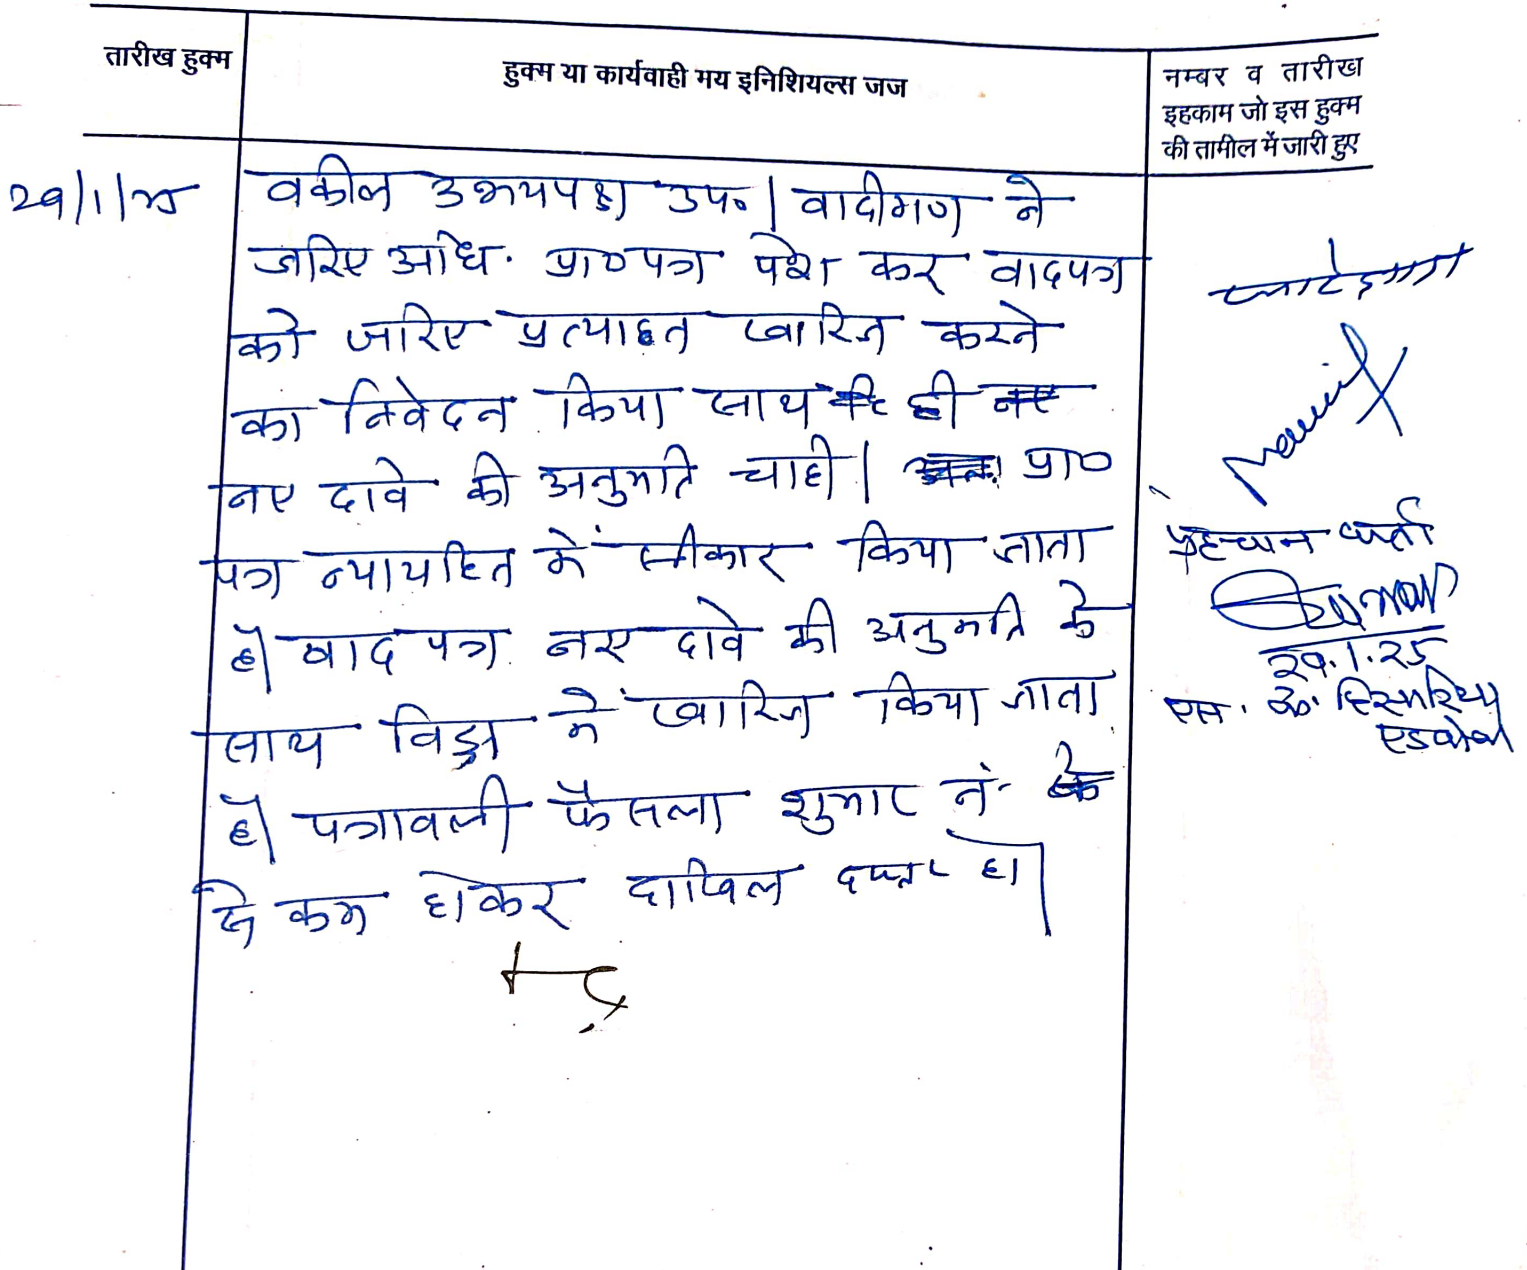 तारीख हुक्म
हुक्म या कार्यवाही मय इनिशियल्स जज
नम्बर व तारीख
इहकाम जो इस हुक्म
की तामील में जारी हुए
29/1/25
वकील उभयपक्ष उप०। वादीगण ने
जरिए अधि. प्रा०पत्र पेश कर वादपत्र
को जरिए प्रत्याहृत खारिज करने
का निवेदन किया साथ ही
नए दावे की अनुमति चाही। प्रा०
पत्र न्यायहित में स्वीकार किया जाता
है। वाद पत्र नए दावे की अनुमति के
साथ विड्रा में खारिज किया जाता
है। पत्रावली फैसला शुमार नं.
से कम होकर दाखिल दफ्तर हो।
पहचान कर्ता
29.1.25
एस. के.
एडवोकेट